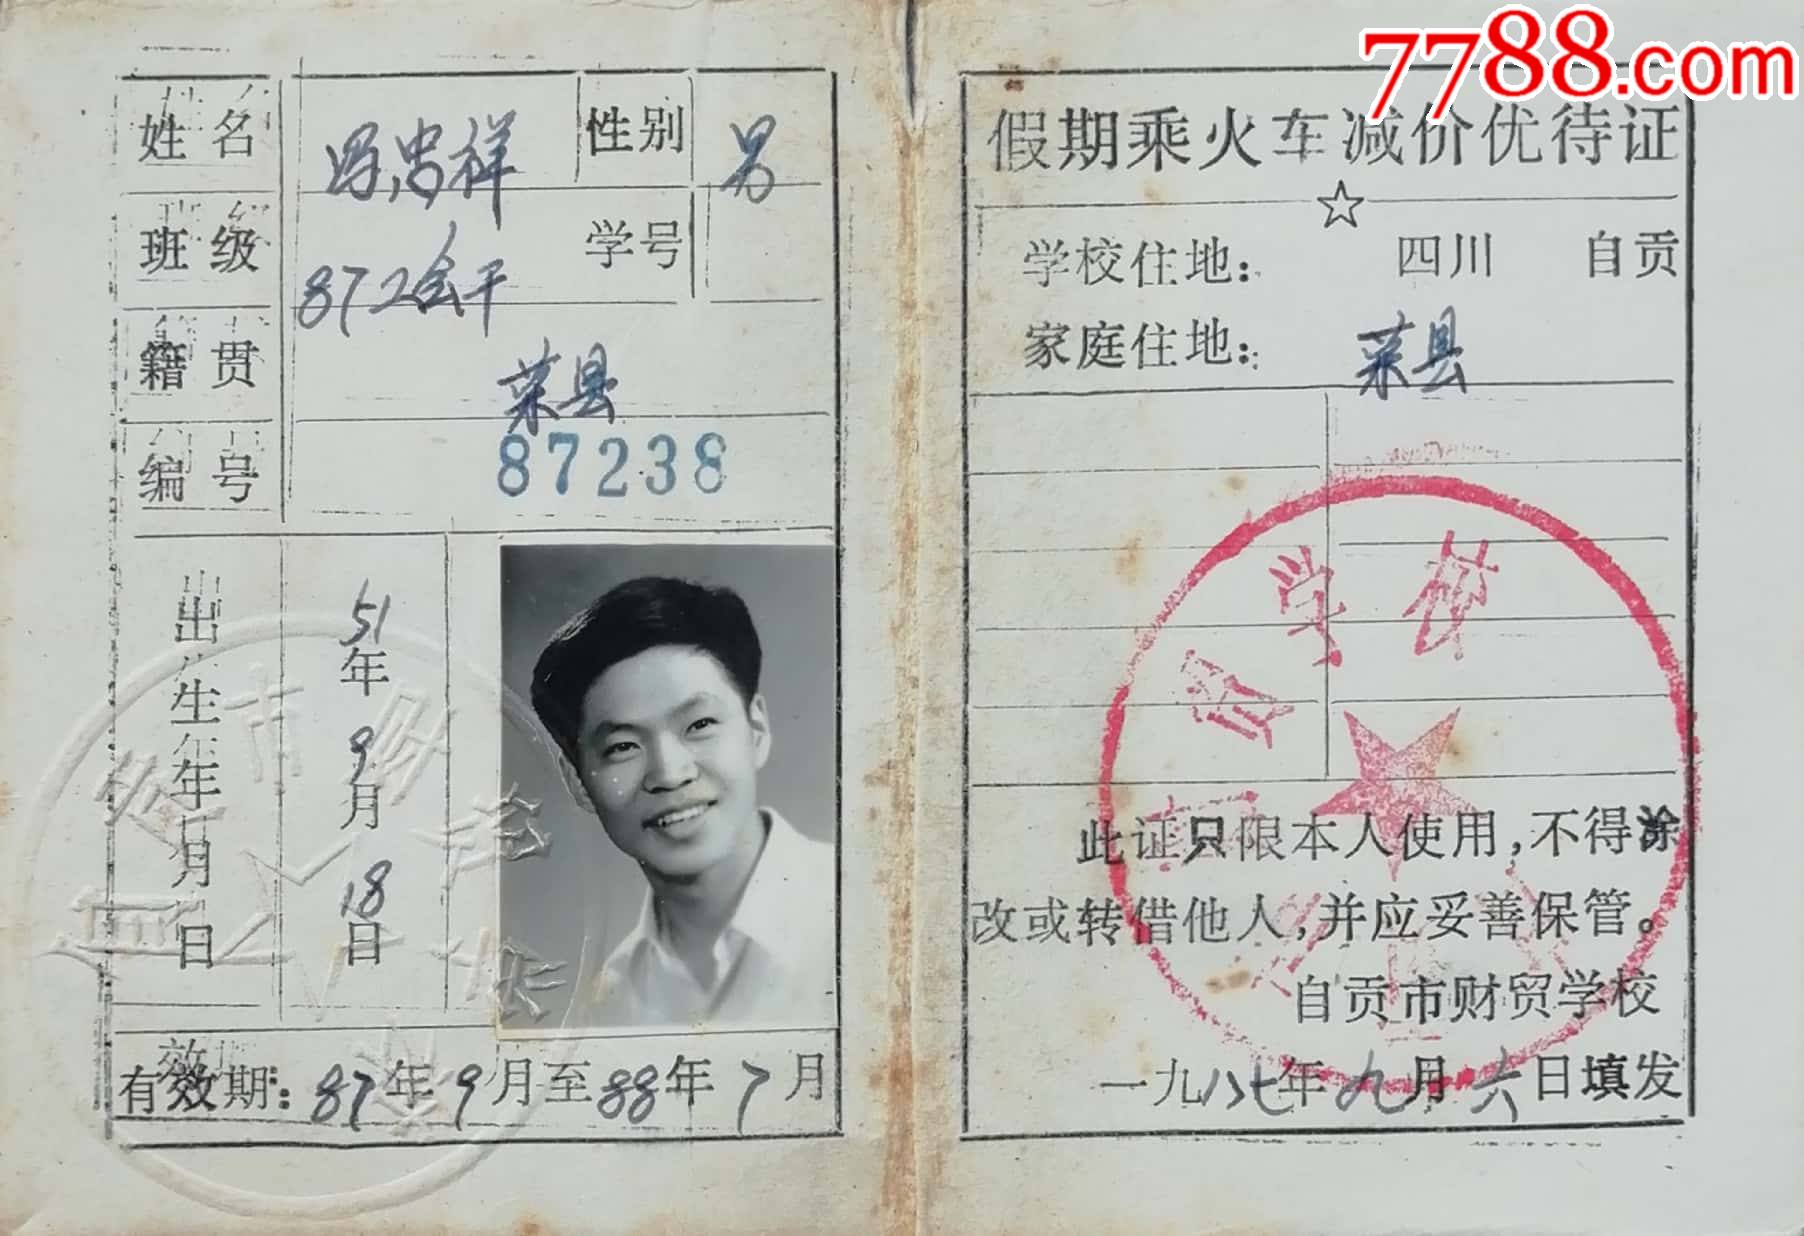 7788.com
姓名 冯忠祥 性别 男
班级 872会干 学号
籍贯 荣县
编号 87238
出生年月日 51年9月18日
有效期：87年9月至88年7月
假期乘火车减价优待证
学校住地： 四川 自贡
家庭住地： 荣县
此证只限本人使用，不得涂
改或转借他人，并应妥善保管。
自贡市财贸学校
一九八七年九月六日填发
贸学校